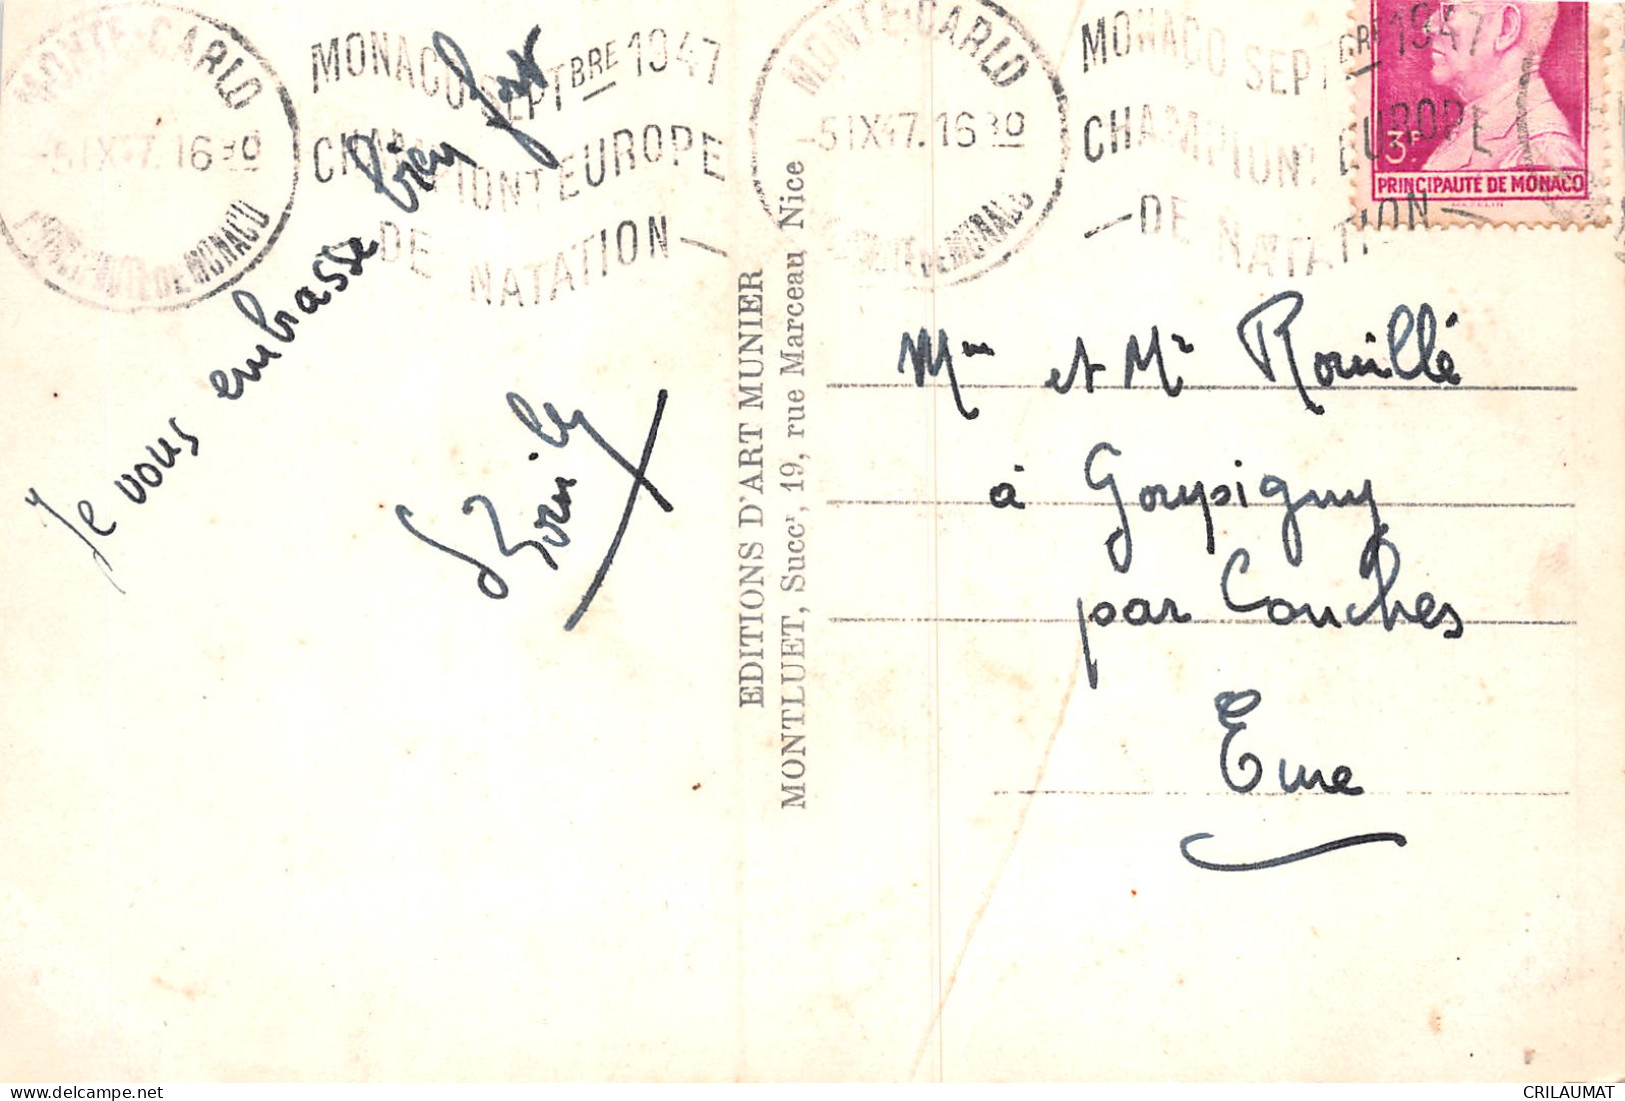 MONTE-CARLO
-5 IX 47. 16 30
PPAUTÉ DE MONACO
MONACO SEPTBRE 1947
CHAMPIONT EUROPE
DE NATATION
MONTE-CARLO
-5 IX 47. 16 30
DE MONACO
MONACO SEPTBRE 1947
CHAMPIONT EUROPE
DE NATATION
3F
PRINCIPAUTE DE MONACO
MAZELIN
Je vous embrasse bien fort
EDITIONS D'ART MUNIER
MONTLUET, Succr, 19, rue Marceau Nice
Mme et Mr Rouillé
à Goupigny
par Conches
Eure
CRILAUMAT